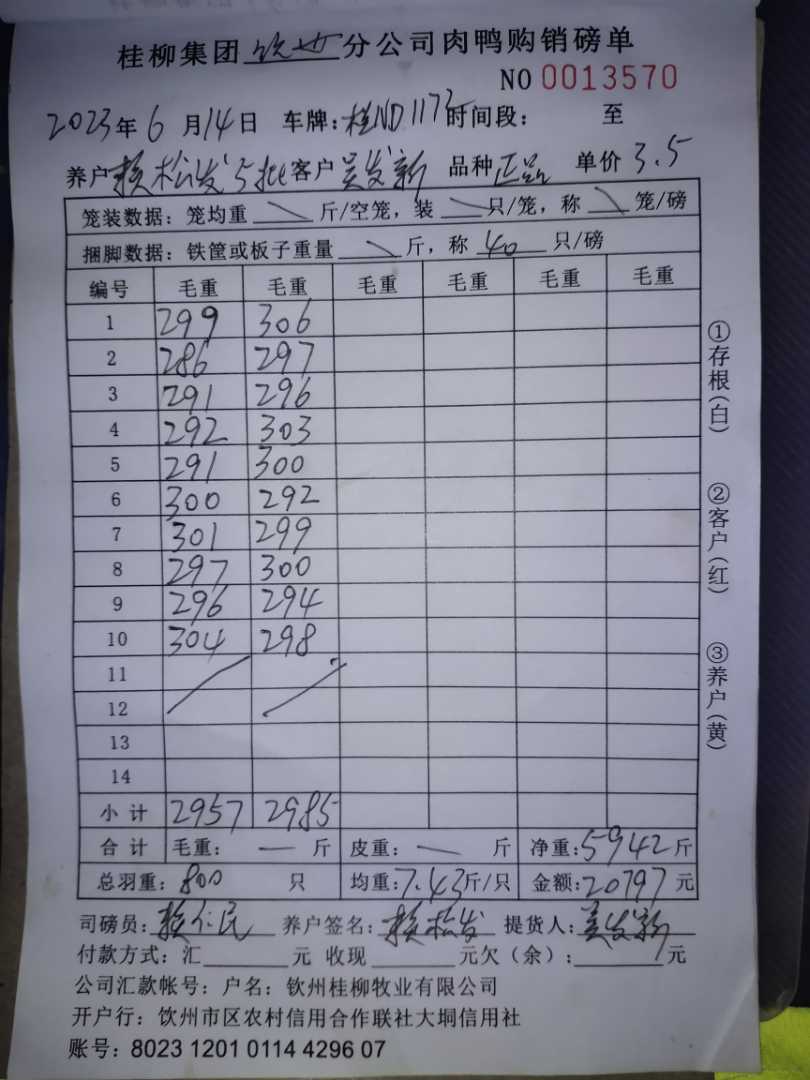 桂柳集团 钦州 分公司肉鸭购销磅单
NO 0013570
2023年6月14日 车牌:桂ND1173 时间段: 至
养户 赖松发5批 客户 吴发新 品种 正品 单价 3.5
笼装数据:笼均重 \ 斤/空笼,装 \ 只/笼,称 \ 笼/磅
捆脚数据:铁筐或板子重量 \ 斤,称 40 只/磅
编号 毛重 毛重 毛重 毛重 毛重 毛重
1 299 306
2 286 297
3 291 296
4 292 303
5 291 300
6 300 292
7 301 299
8 297 300
9 296 294
10 304 298
11
12
13
14
小计 2957 2985
合计 毛重: — 斤 皮重: — 斤 净重:5942斤
总羽重:800 只 均重:7.43斤/只 金额:20797元
司磅员:赖仁民 养户签名:赖松发 提货人:吴发新
付款方式:汇 元 收现 元欠(余): 元
公司汇款帐号:户名:钦州桂柳牧业有限公司
开户行:钦州市区农村信用合作联社大垌信用社
账号:8023 1201 0114 4296 07
①存根(白)
②客户(红)
③养户(黄)